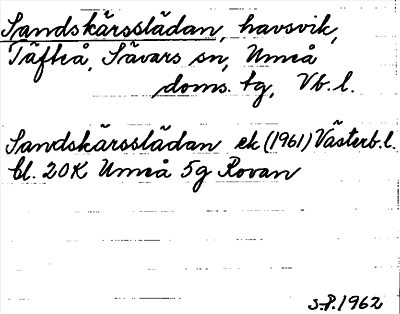 Sandskärsslädan, havsvik,
Täfteå, Sävars sn, Umeå
doms. tg, Vb. l.
Sandskärsslädan ek (1961) Västerb. l.
bl. 20K Umeå 5g Rovan
S.P. 1962